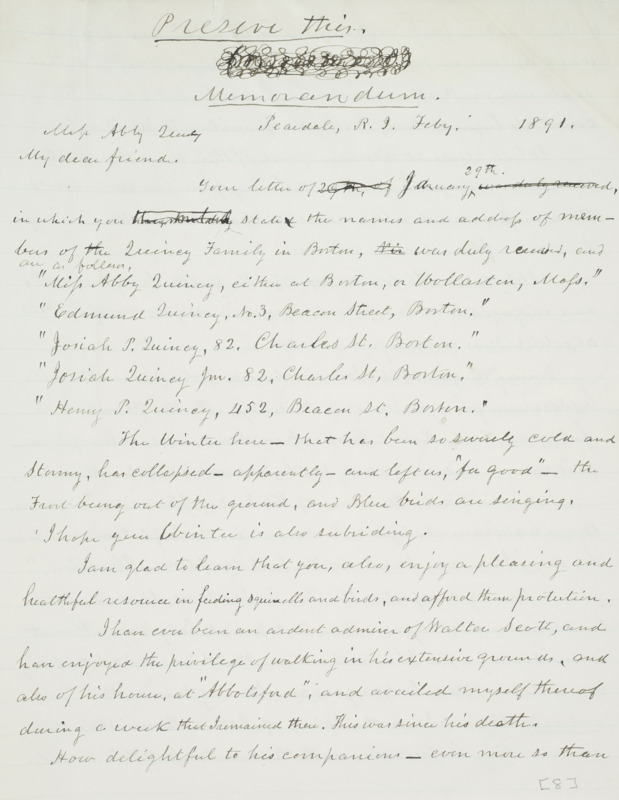 Preserve this.
Memorandum.
Peacedale, R. I. Feby. 1891.
Miss Abby Quincy
My dear friend.
29th.
Your letter of 29th, of January was duly received,
in which you state the names and address of mem-
bers of the Quincy Family in Boston, was duly received, and
are as follows,
"Miss Abby Quincy, either at Boston, or Wollaston, Mass."
"Edmund Quincy, No. 3, Beacon Street, Boston."
"Josiah P. Quincy, 82. Charles St. Boston."
"Josiah Quincy Jnr. 82, Charles St, Boston."
"Henry P. Quincy, 452, Beacon St. Boston."
The Winter here – that has been so severely cold and
Stormy, has collapsed – apparently – and left us, "for good" – the
Frost being out of the ground, and Blue birds are singing.
I hope your Winter is also subsiding.
I am glad to learn that you, also, enjoy a pleasing and
healthful resource in feeding squirrells and birds, and afford them protection.
I have ever been an ardent admirer of Walter Scott, and
have enjoyed the privilege of walking in his extensive grounds, and
also of his house, at "Abbotsford"; and availed myself thereof
during a week that I remained there. This was since his death.
How delightful to his companions – even more so than
[8]